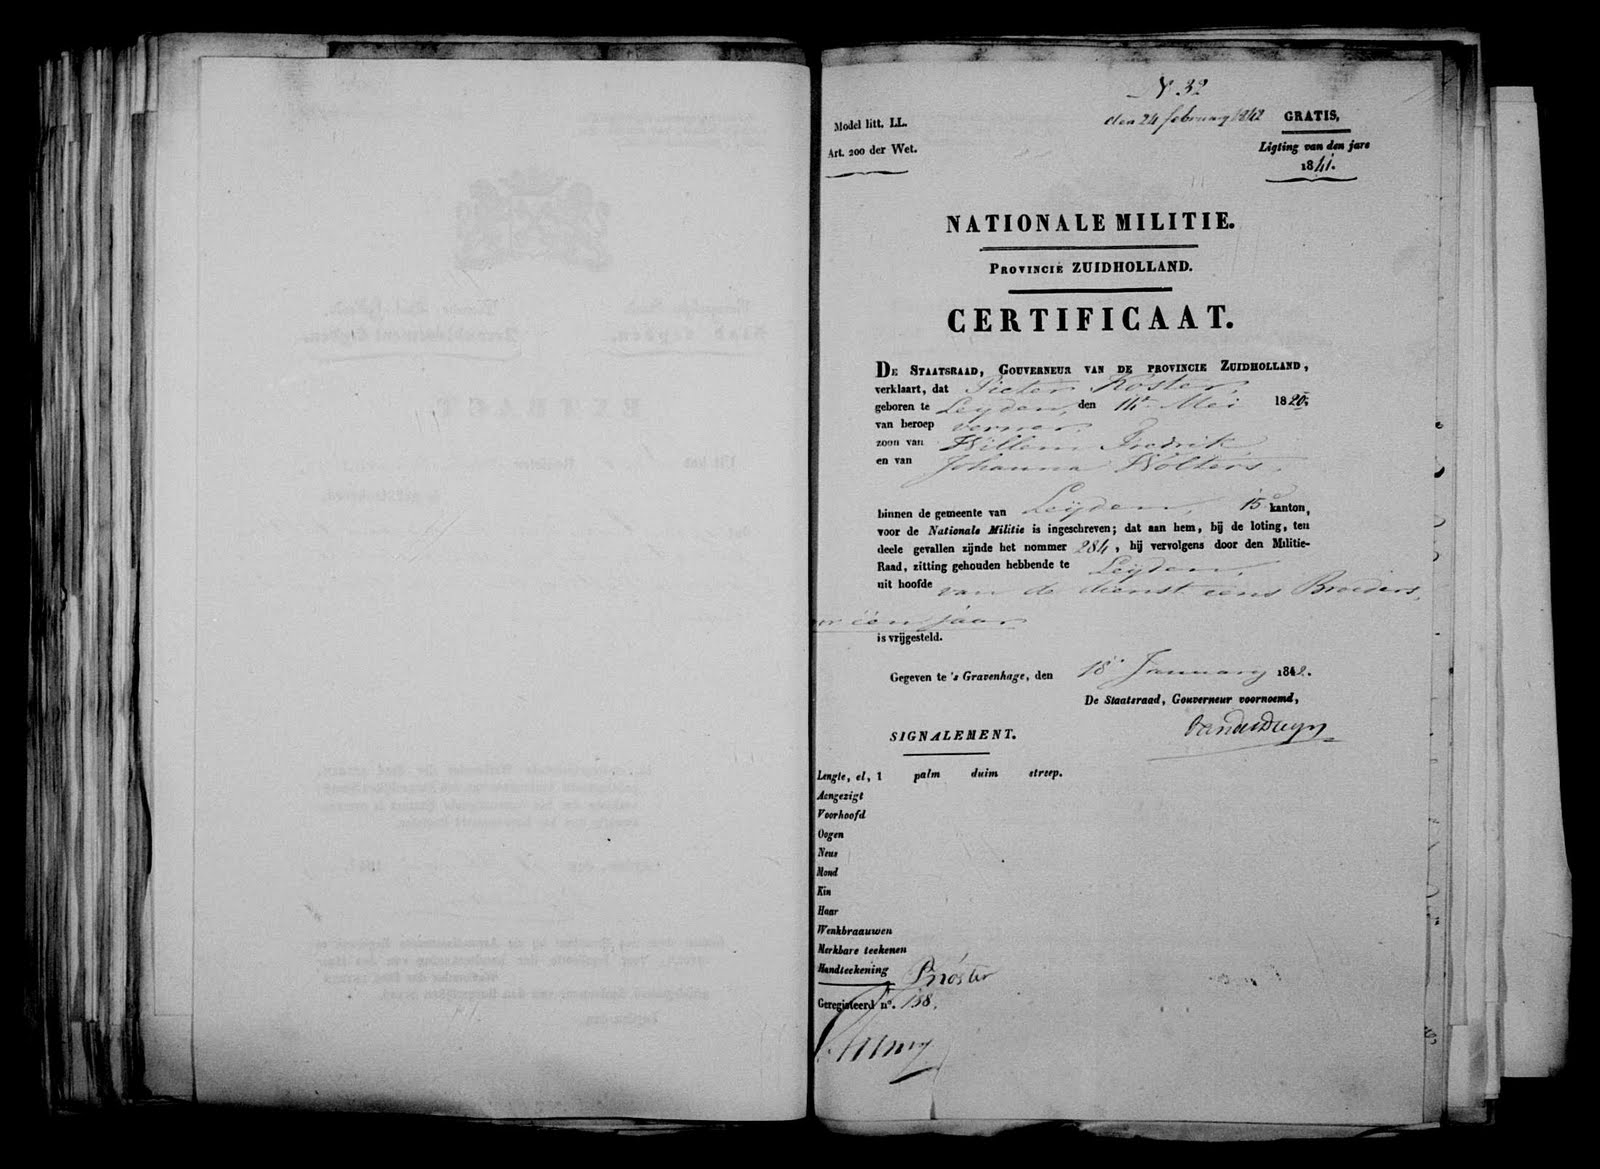 N 32
den 24 february 1842
GRATIS,
Model litt. LL.
Art. 200 der Wet.
Ligting van den jare
1841.
NATIONALE MILITIE.
PROVINCIE ZUIDHOLLAND.
CERTIFICAAT.
DE STAATSRAAD, GOUVERNEUR VAN DE PROVINCIE ZUIDHOLLAND,
verklaart, dat Pieter Koster,
geboren te Leyden, den 14e Mei 1820,
van beroep verwer,
zoon van Willem Fredrik
en van Johanna Wolters,
binnen de gemeente van Leyden, 15e kanton,
voor de Nationale Militie is ingeschreven; dat aan hem, bij de loting, ten
deele gevallen zijnde het nommer 284, hij vervolgens door den Militie-
Raad, zitting gehouden hebbende te Leyden,
uit hoofde van de dienst eens Broeders,
voor één jaar
is vrijgesteld.
Gegeven te 's Gravenhage, den 18e January 1842.
De Staatsraad, Gouverneur voornoemd,
vanderDuyn
SIGNALEMENT.
Lengte, el, 1 palm duim streep.
Aangezigt
Voorhoofd
Oogen
Neus
Mond
Kin
Haar
Wenkbraauwen
Merkbare teekenen
Handteekening PKoster
Geregisteerd no. 158.